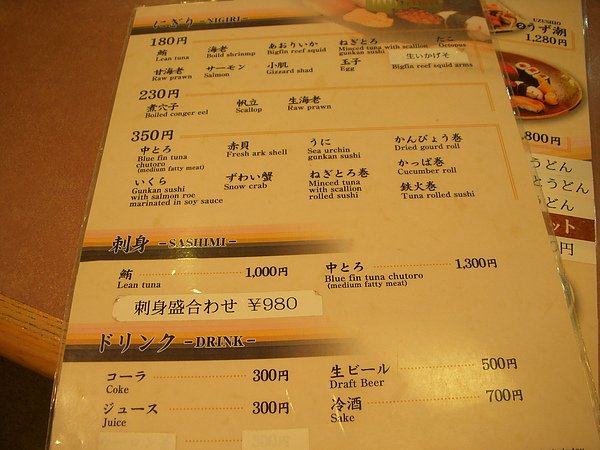 にぎり -NIGIRI-
180円
鮪 海老 あおりいか ねぎとろ たこ
Lean tuna Boild shrimp Bigfin reef squid Minced tuna with scallion Octopus
gunkan sushi
甘海老 サーモン 小肌 玉子 生いかげそ
Raw prawn Salmon Gizzard shad Egg Bigfin reef squid arms
230円
煮穴子 帆立 生海老
Boiled conger eel Scallop Raw prawn
350円
中とろ 赤貝 うに かんぴょう巻
Blue fin tuna Fresh ark shell Sea urchin Dried gourd roll
chutoro gunkan sushi
(medium fatty meat)
かっぱ巻
Cucumber roll
いくら ずわい蟹 ねぎとろ巻 鉄火巻
Gunkan sushi Snow crab Minced tuna Tuna rolled sushi
with salmon roe with scallion
marinated in soy sauce rolled sushi
刺身 -SASHIMI-
鮪 1,000円 中とろ 1,300円
Lean tuna Blue fin tuna chutoro
(medium fatty meat)
刺身盛合わせ ¥980
ドリンク -DRINK-
コーラ 300円 生ビール 500円
Coke Draft Beer
ジュース 300円 冷酒 700円
Juice Sake
UZUSHIO
うず潮
1,280円
,800円
うどん
うどん
うどん
ット
円